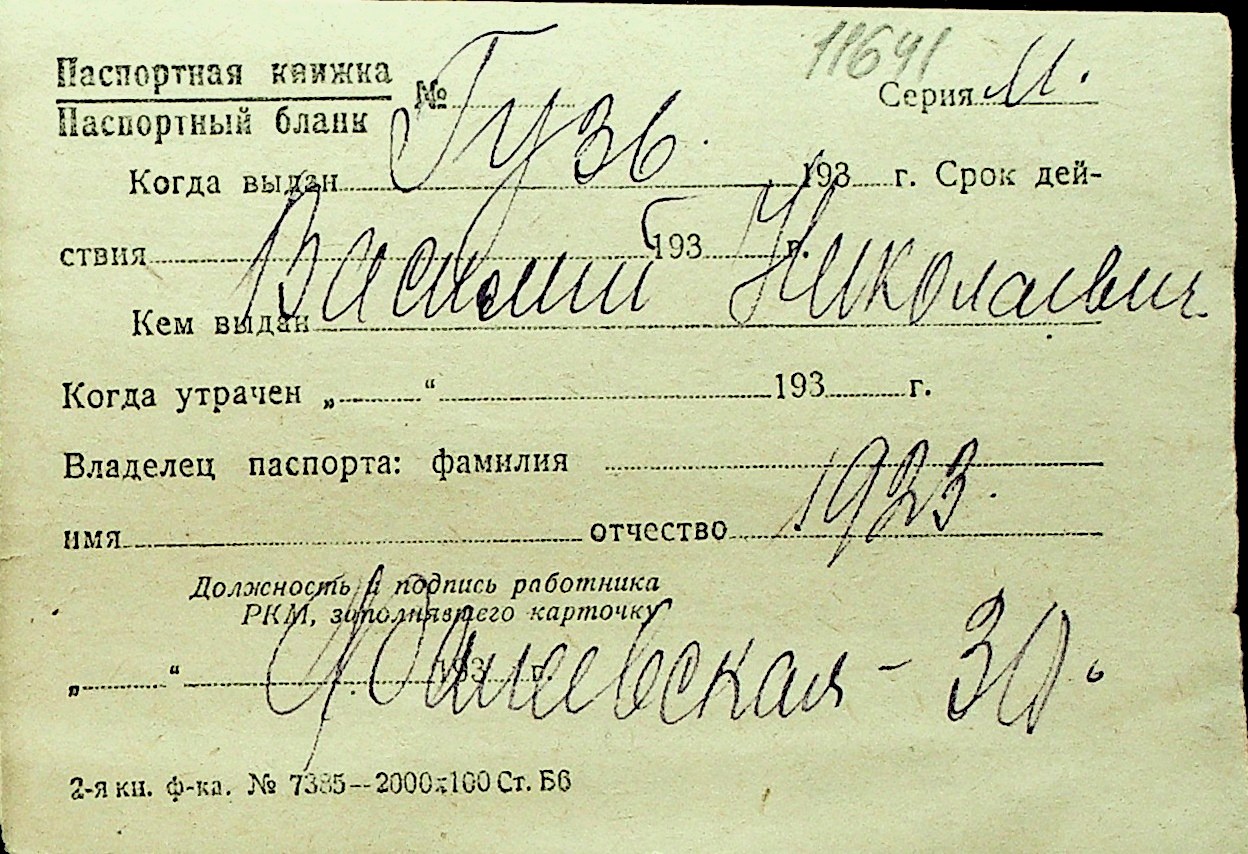 11641
Паспортная книжка
Паспортный бланк № Серия М.
Гузь.
Когда выдан , 193 г. Срок дей-
ствия 193 г.
Василий Николаевич
Кем выдан
Когда утрачен „ “ 193 г.
Владелец паспорта: фамилия
1923.
имя отчество
Должность и подпись работника
РКМ, заполнявшего карточку
„ “ 193 г.
30
2-я кн. ф-ка. № 7385—2000х100 Ст. Б6